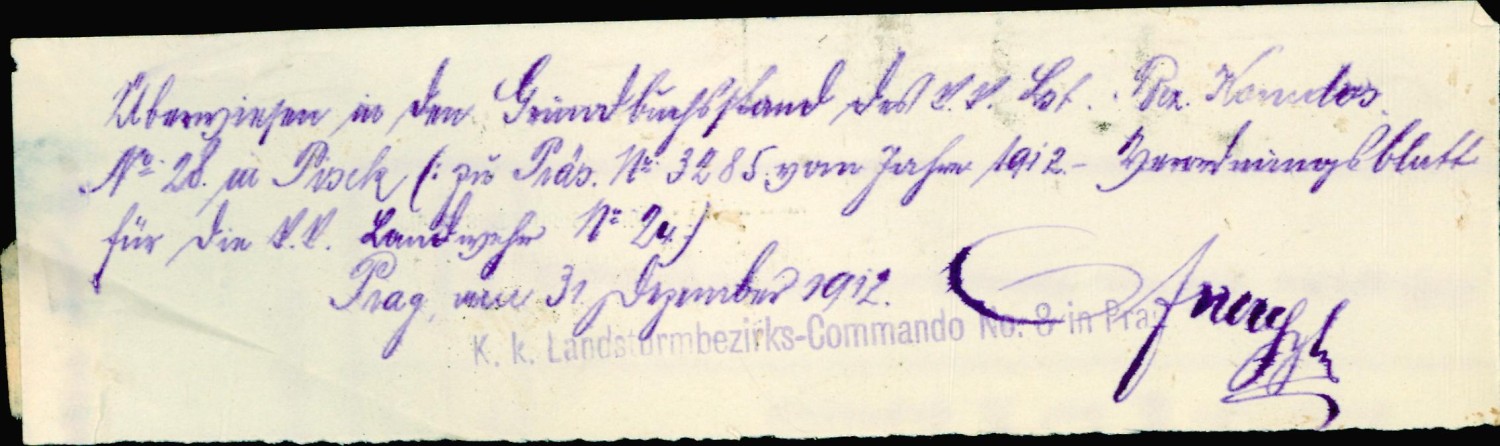 Überwiesen in den Grundbuchsstand des k.k. Lst. Bez. Komdos
No 28. in Pisek (: zu Präs. No 3285 vom Jahre 1912 - Verordnungsblatt
für die k.k. Landwehr No 24.)
Prag, am 31. Dezember 1912.
K. k. Landsturmbezirks-Commando No: 8 in Prag